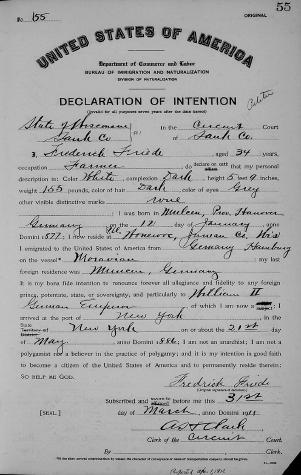 55
No 155
ORIGINAL
UNITED STATES OF AMERICA
Department of Commerce and Labor
BUREAU OF IMMIGRATION AND NATURALIZATION
DIVISION OF NATURALIZATION
DECLARATION OF INTENTION
(Invalid for all purposes seven years after the date hereof)
State of Wisconsin
Sauk Co. ss: In the Circuit Court
of Sauk Co.
I, Frederick Friede, aged 34 years,
occupation Farmer, do declare on oath that my personal
description is: Color White, complexion Dark, height 5 feet 9 inches,
weight 155 pounds, color of hair Dark, color of eyes Grey
other visible distinctive marks none
I was born in Prov. Hanover
Germany on the 12 day of January, anno
Domini 1877; I now reside at Juneau Co. Wis
I emigrated to the United States of America from Germany Hamburg
on the vessel Moravian; my last
foreign residence was Germany
It is my bona fide intention to renounce forever all allegiance and fidelity to any foreign
prince, potentate, state, or sovereignty, and particularly to William II
German Emperor, of which I am now a subject; I
arrived at the port of New York, in the
State of New York on or about the 21st day
of May, anno Domini 1886; I am not an anarchist; I am not a
polygamist nor a believer in the practice of polygamy; and it is my intention in good faith
to become a citizen of the United States of America and to permanently reside therein:
SO HELP ME GOD.
Fredrick Friede
(Original signature of declarant)
Subscribed and sworn to before me this 31st
[SEAL] day of March, anno Domini 1911
Clark
Clerk of the Circuit Court.
By , Clerk.